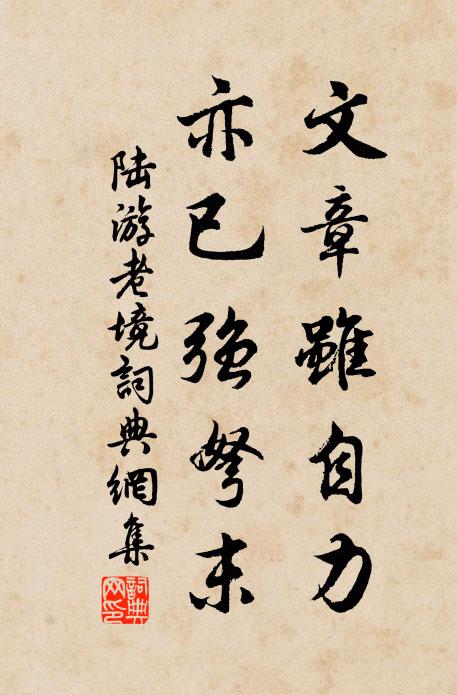 文章雖自力
亦已強弩末
陸游老境詞典網集
詞典網印